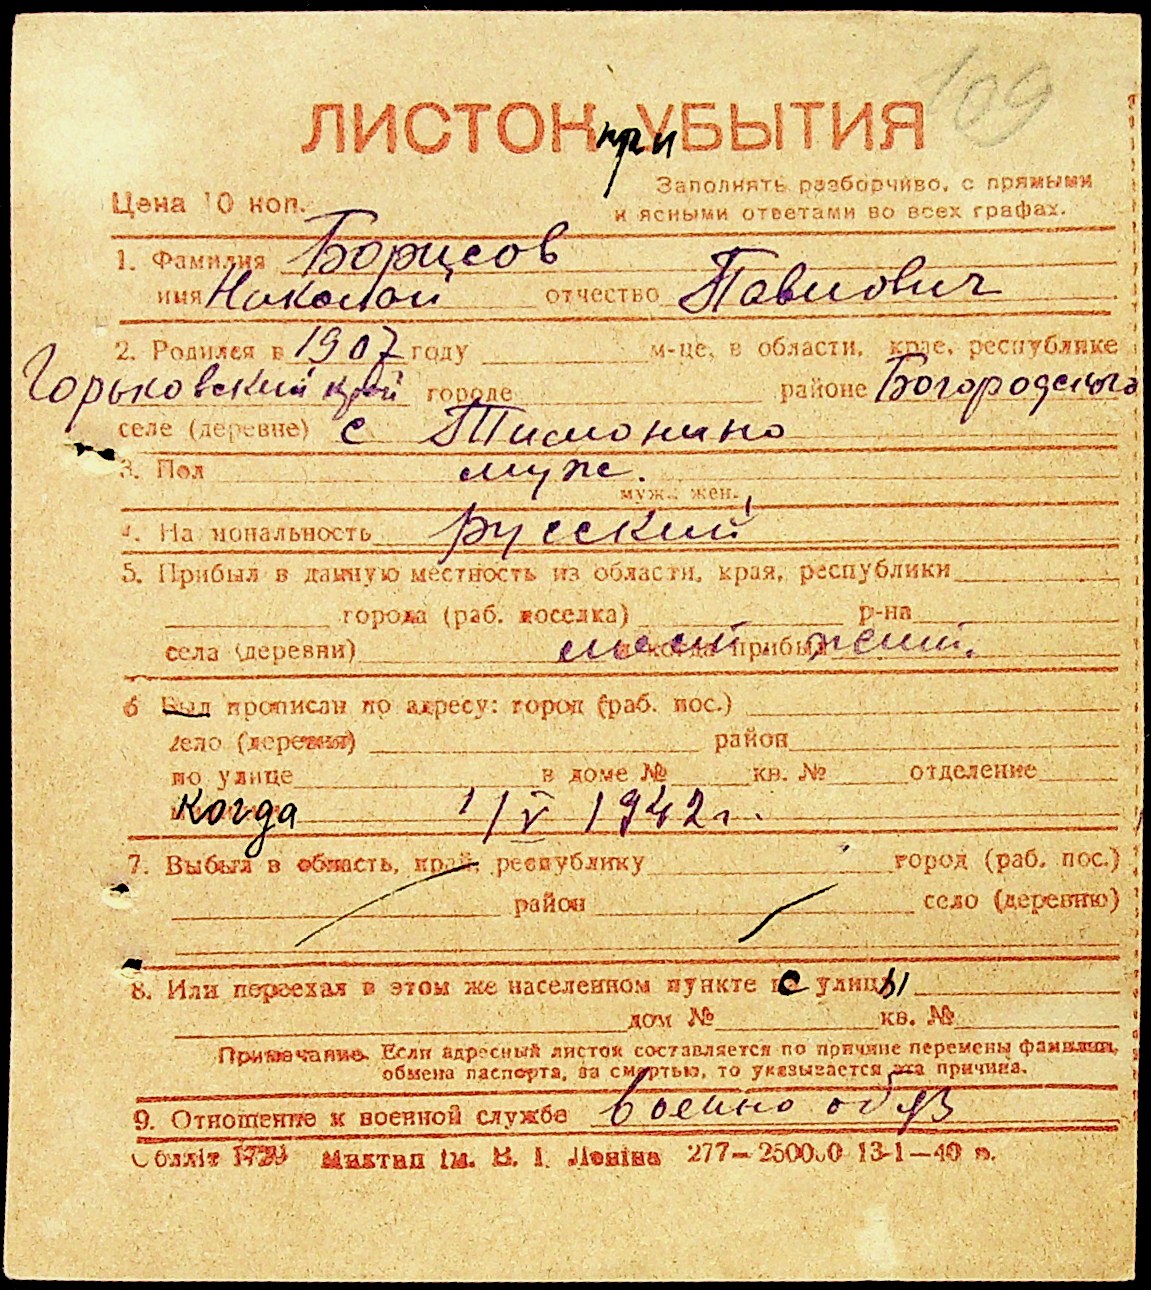 109
ЛИСТОК при УБЫТИЯ
Заполнять разборчиво, с прямыми
и ясными ответами во всех графах.
Цена 10 коп.
1. Фамилия Борисов
имя Николай отчество Павлович
2. Родился в 1907 году м-це, в области, крае, республике
Горьковский край городе районе Богородского
селе (деревне) с Тимонино
3. Пол муж.
муж., жен.
4. Национальность русский
5. Прибыл в данную местность из области, края, республики
города (раб. поселка) р-на
села (деревни) мест и когда прибыл жит.
6 Был прописан по адресу: город (раб. пос.)
село (деревня) район
по улице в доме № кв. № отделение
когда 1/V 1942 г.
7. Выбыл в область, край, республику город (раб. пос.)
район село (деревню)
8. Или переехал в этом же населенном пункте с улицы
дом № кв. №
Примечание. Если адресный листок составляется по причине перемены фамилии,
обмена паспорта, за смертью, то указывается эта причина.
9. Отношение к военной службе военнообяз
Облліт Миктип ім. В. І. Леніна 277—250000 13-1—40 р.